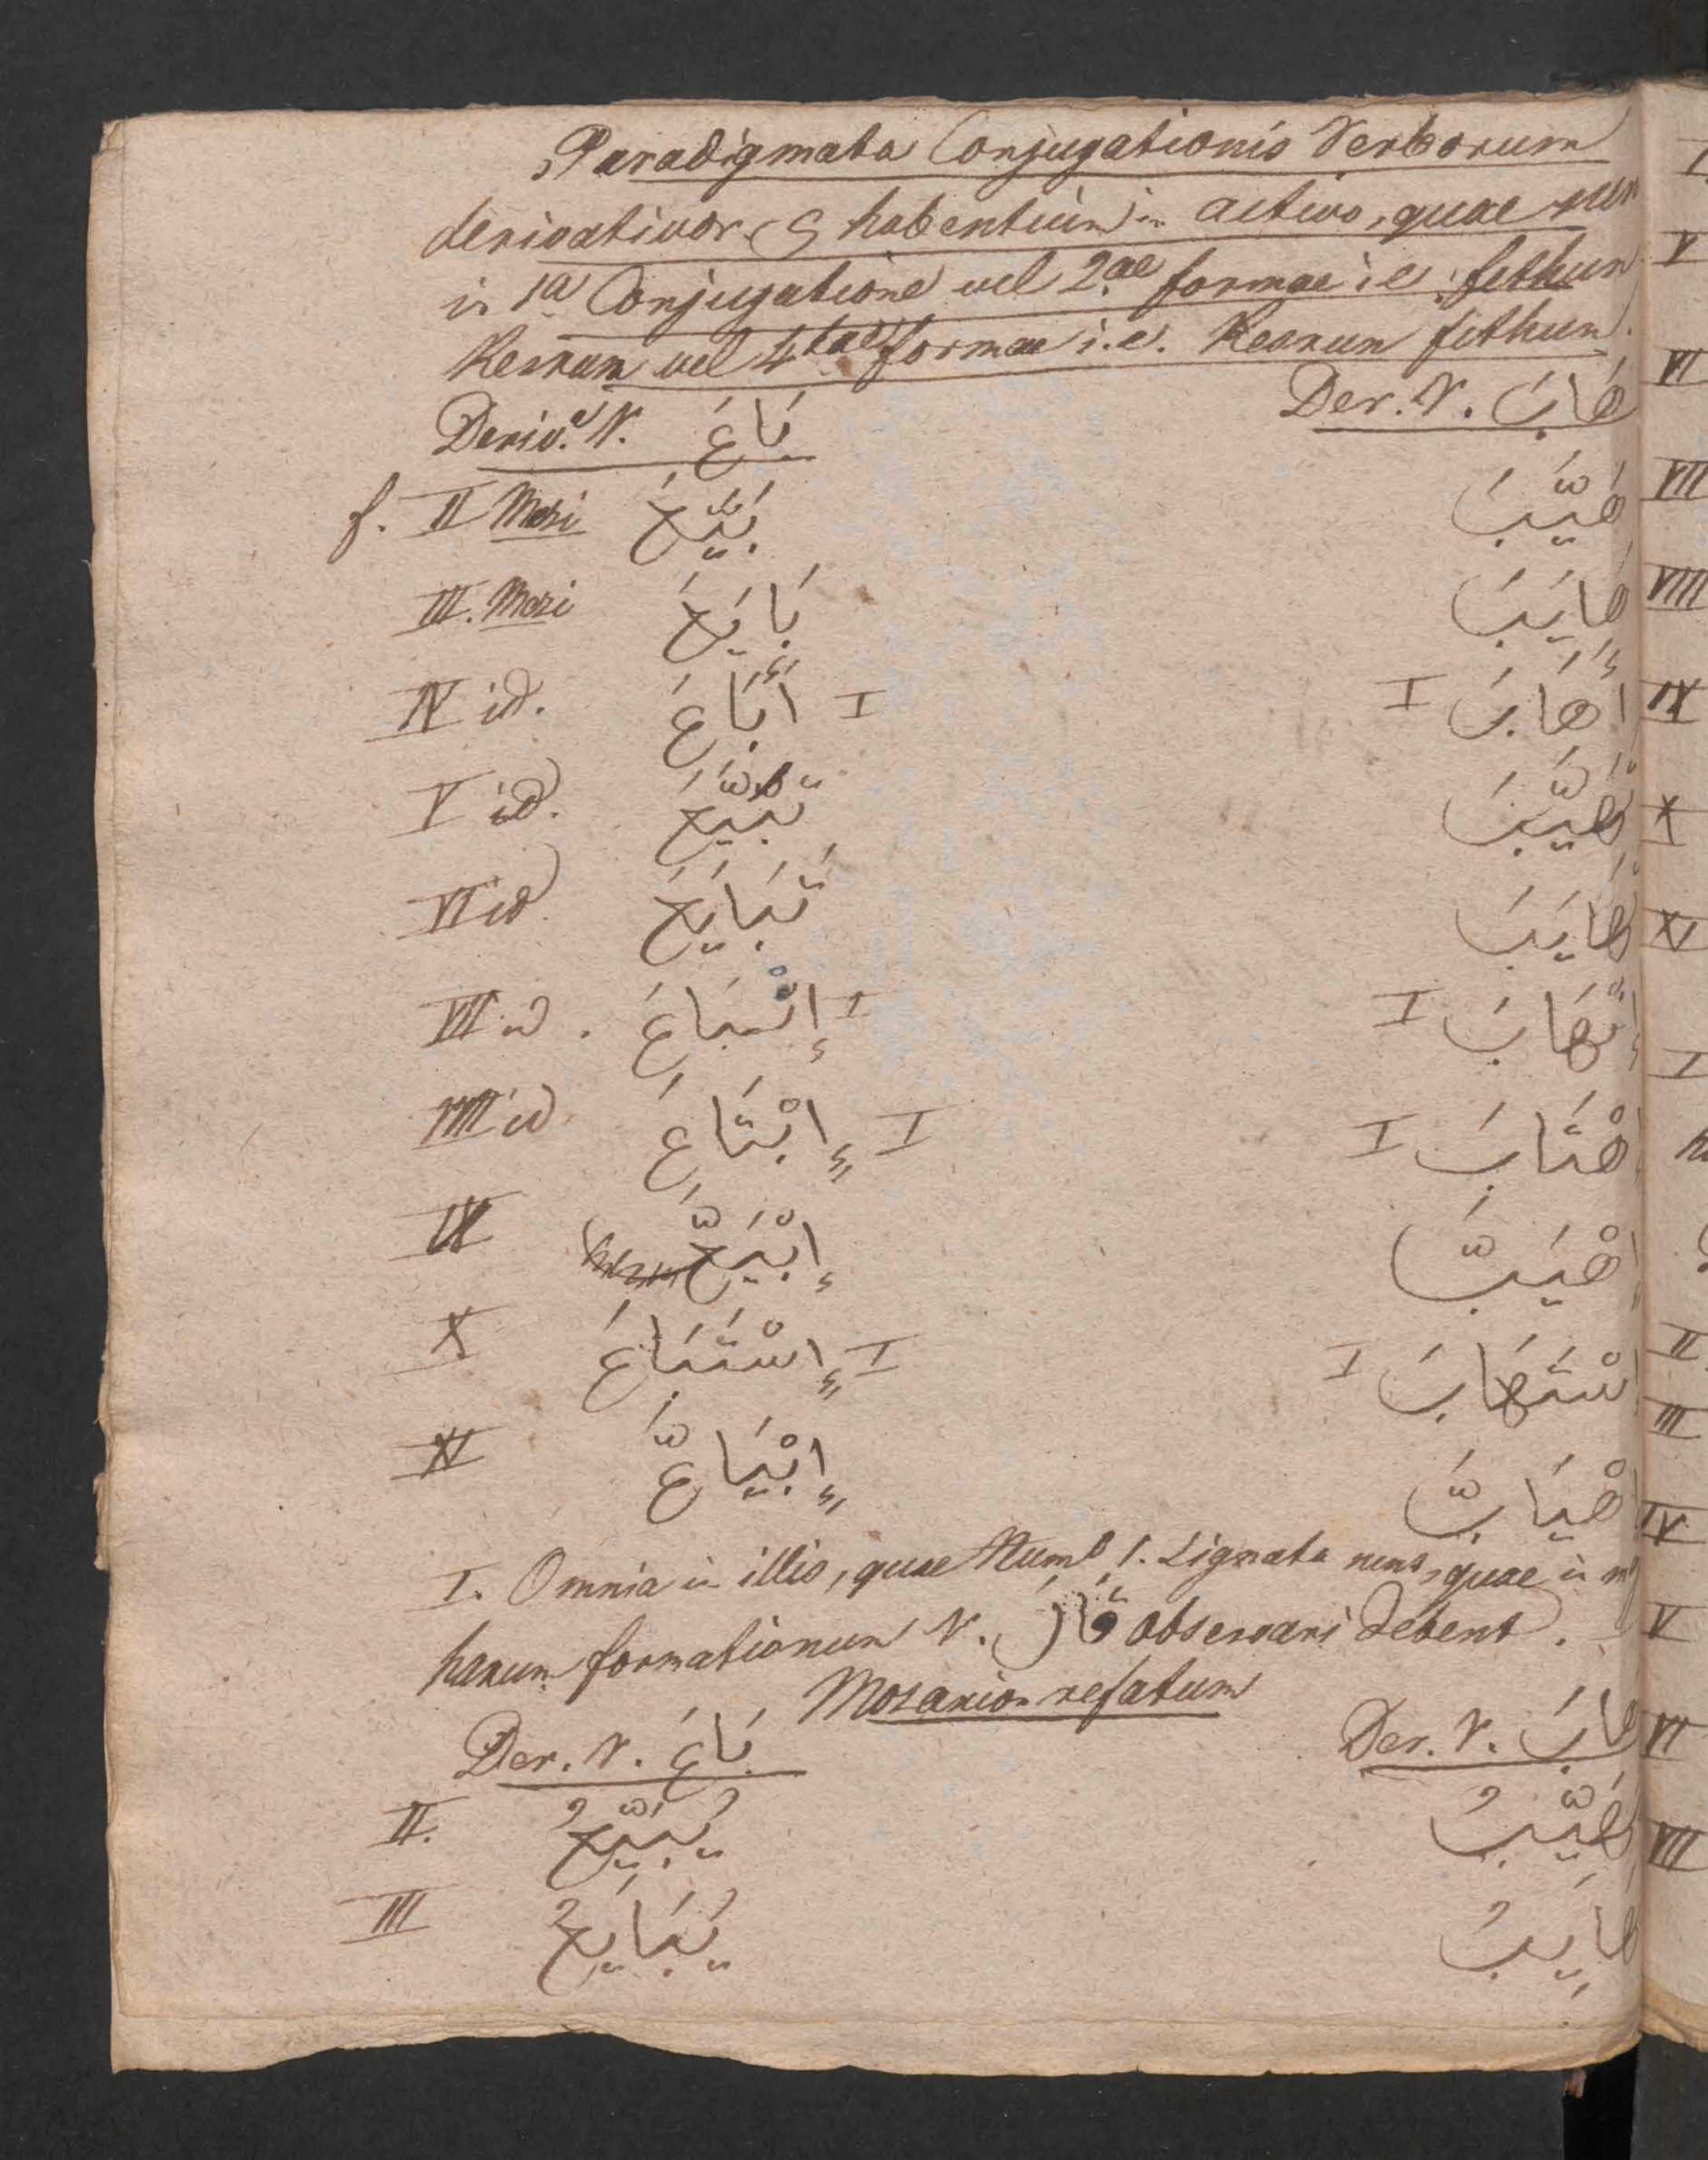 Paradigmata Conjugationis Verborum
derivativor. habentium in activo, quae sunt
in 1a Conjugatione vel 2ae formae i.e. fethun
Kesrun vel 4tae formae i.e. Kesrun fethun.
Deriv. V. بَاعَ Der. V. هَابَ
f. II Mazi بَيَّعَ هَيَّبَ
III. Mazi بَايَعَ هَايَبَ
IV id. أَبَاعَ I I أَهَابَ
V id. تَبَيَّعَ تَهَيَّبَ
VI id تَبَايَعَ تَهَايَبَ
VII id. إِنْبَاعَ I I إِنْهَابَ
VIII id إِبْتَاعَ I I إِهْتَابَ
IX إِبْيَعَّ إِهْيَبَّ
X إِسْتَبَاعَ I I إِسْتَهَابَ
XI إِبْيَاعَّ إِهْيَابَّ
I. Omnia in illis, quae Num. 1. signata sunt, quae in
harum formationum V. قَالَ observari debent.
Mozarion refatum
Der. V. بَاعَ Der. V. هَابَ
II. يُبَيِّعُ يُهَيِّبُ
III يُبَايِعُ يُهَايِبُ